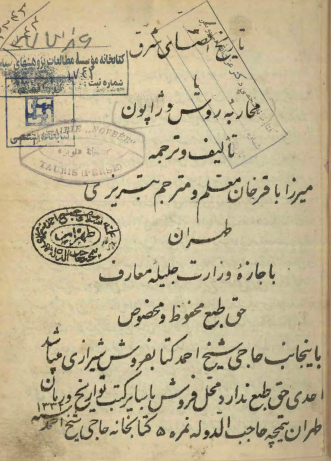 تاریخ اقصای شرق
کتابخانه موسسه مطالعات و پژوهشهای سیاسی
شماره ثبت
یا
محاربه روس و ژاپون
LIBRAIRIE
TAURIS (PERSE)
تألیف و ترجمه
میرزا باقرخان معلم و مترجم تبریزی
طهران
با جازهٔ وزارت جلیلهٔ معارف
حق طبع محفوظ و مخصوص
باینجانب حاجی شیخ احمد کتابفروش شیرازی میباشد
احدی حق طبع ندارد محل فروش با سایر کتب تواریخ و رمان
طهران تیمچه حاجب الدوله نمره ۵ کتابخانه حاجی شیخ احمد